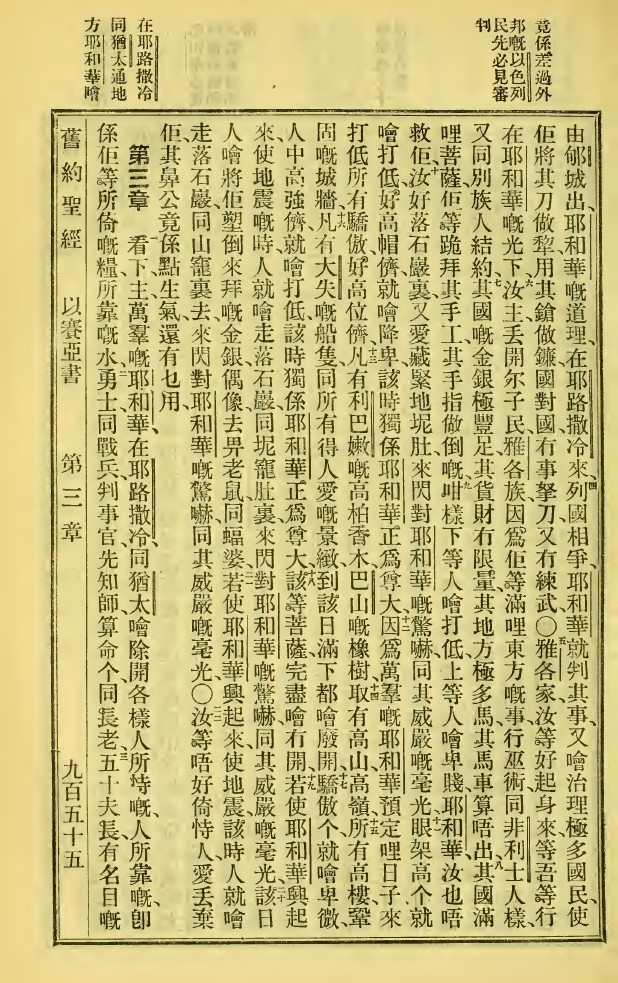 竟係差過外
邦嘅以色列
民先必見審
判
在耶路撒冷
同猶太通地
方耶和華噲
由郇城出、耶和華嘅道理、在耶路撒冷來、四列國相爭、耶和華就判其事、又噲治理極多國民、使
佢將其刀做犂、用其鎗做鐮、國對國冇事拏刀、又冇練武、〇五雅各家、汝等好起身來、等吾等行
在耶和華嘅光下、六汝主丢開尔子民雅各族、因爲佢等滿哩東方嘅事、行巫術、同非利士人樣、
又同別族人結約、七其國嘅金銀極豐足、其貨財冇限量、其地方極多馬、其馬車算唔出、八其國滿
哩菩薩、佢等跪拜其手工、其手指做倒嘅、九咁樣下等人噲打低、上等人噲卑賤、耶和華汝也唔
救佢、十汝好落石巖裏、又愛藏緊地坭肚、來閃對耶和華嘅驚嚇、同其威嚴嘅毫光、十一眼架高个就
噲打低、好高帽儕就噲降卑、該時獨係耶和華正爲尊大、十二因爲萬羣嘅耶和華、預定哩日子、來
打低所有驕傲、好高位儕、十三凡有利巴嫩嘅高柏香木、巴山嘅橡樹、十四取有高山高嶺、十五所有高樓、鞏
固嘅城牆、十六凡有大失嘅船隻、同所有得人愛嘅景緻、十七到該日滿下都噲廢開、驕傲个就噲卑微、
人中高強儕就噲打低、該時獨係耶和華正爲尊大、十八該等菩薩完盡噲冇開、十九若使耶和華興起
來使地震嘅時、人就噲走落石巖、同坭窿肚裏、來閃對耶和華嘅驚嚇、同其威嚴嘅毫光、二十該日
人噲將佢塑倒來拜嘅金銀偶像、去畀老鼠、同蝠婆、二一若使耶和華興起來使地震、該時人就噲
走落石巖、同山窿裏去、來閃對耶和華嘅驚嚇、同其威嚴嘅毫光、〇二二汝等唔好倚恃人、愛丢棄
佢、其鼻公竟係點生氣、還有乜用、
第三章　一看下、主萬羣嘅耶和華、在耶路撒冷、同猶太、噲除開各樣人所恃嘅、人所靠嘅、卽
係佢等所倚嘅糧、所靠嘅水、二勇士同戰兵、判事官、先知師、算命个、同長老、三五十夫長、有名目嘅
舊約聖經　以賽亞書　第三章　九百五十五